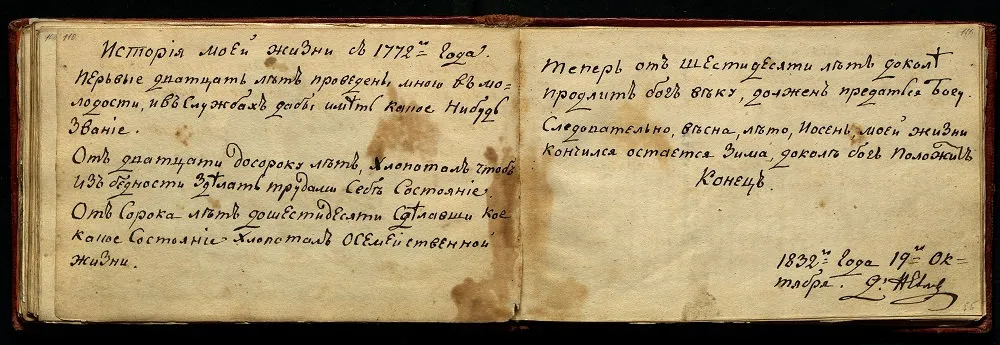 Исторія моей жизни съ 1772го Года.
Перьвые дватцать лѣтъ проведены мною въ мо-
лодости, ивъ Службахъ дабы имѣть какое Нибудь
Званіе.
Отъ дватцати Досороку лѣтъ, Хлопоталъ чтобъ
Изъ бѣдности Здѣлать трудами Себѣ Состояніе.
Отъ Сорока лѣтъ дошестидесяти Сдѣлавши кое
какое Состояніе Хлопоталъ Осемейственной
жизни.
Теперь отъ Шестидесяти лѣтъ доколѣ
Продлитъ богъ вѣку, долженъ предаться Богу.
Следовательно, вѣсна, лѣто, Иосень, моей жизни
Кончился остается Зима, доколѣ богъ Положитъ
Конецъ.
1832го Года 19го Ок=
тября.